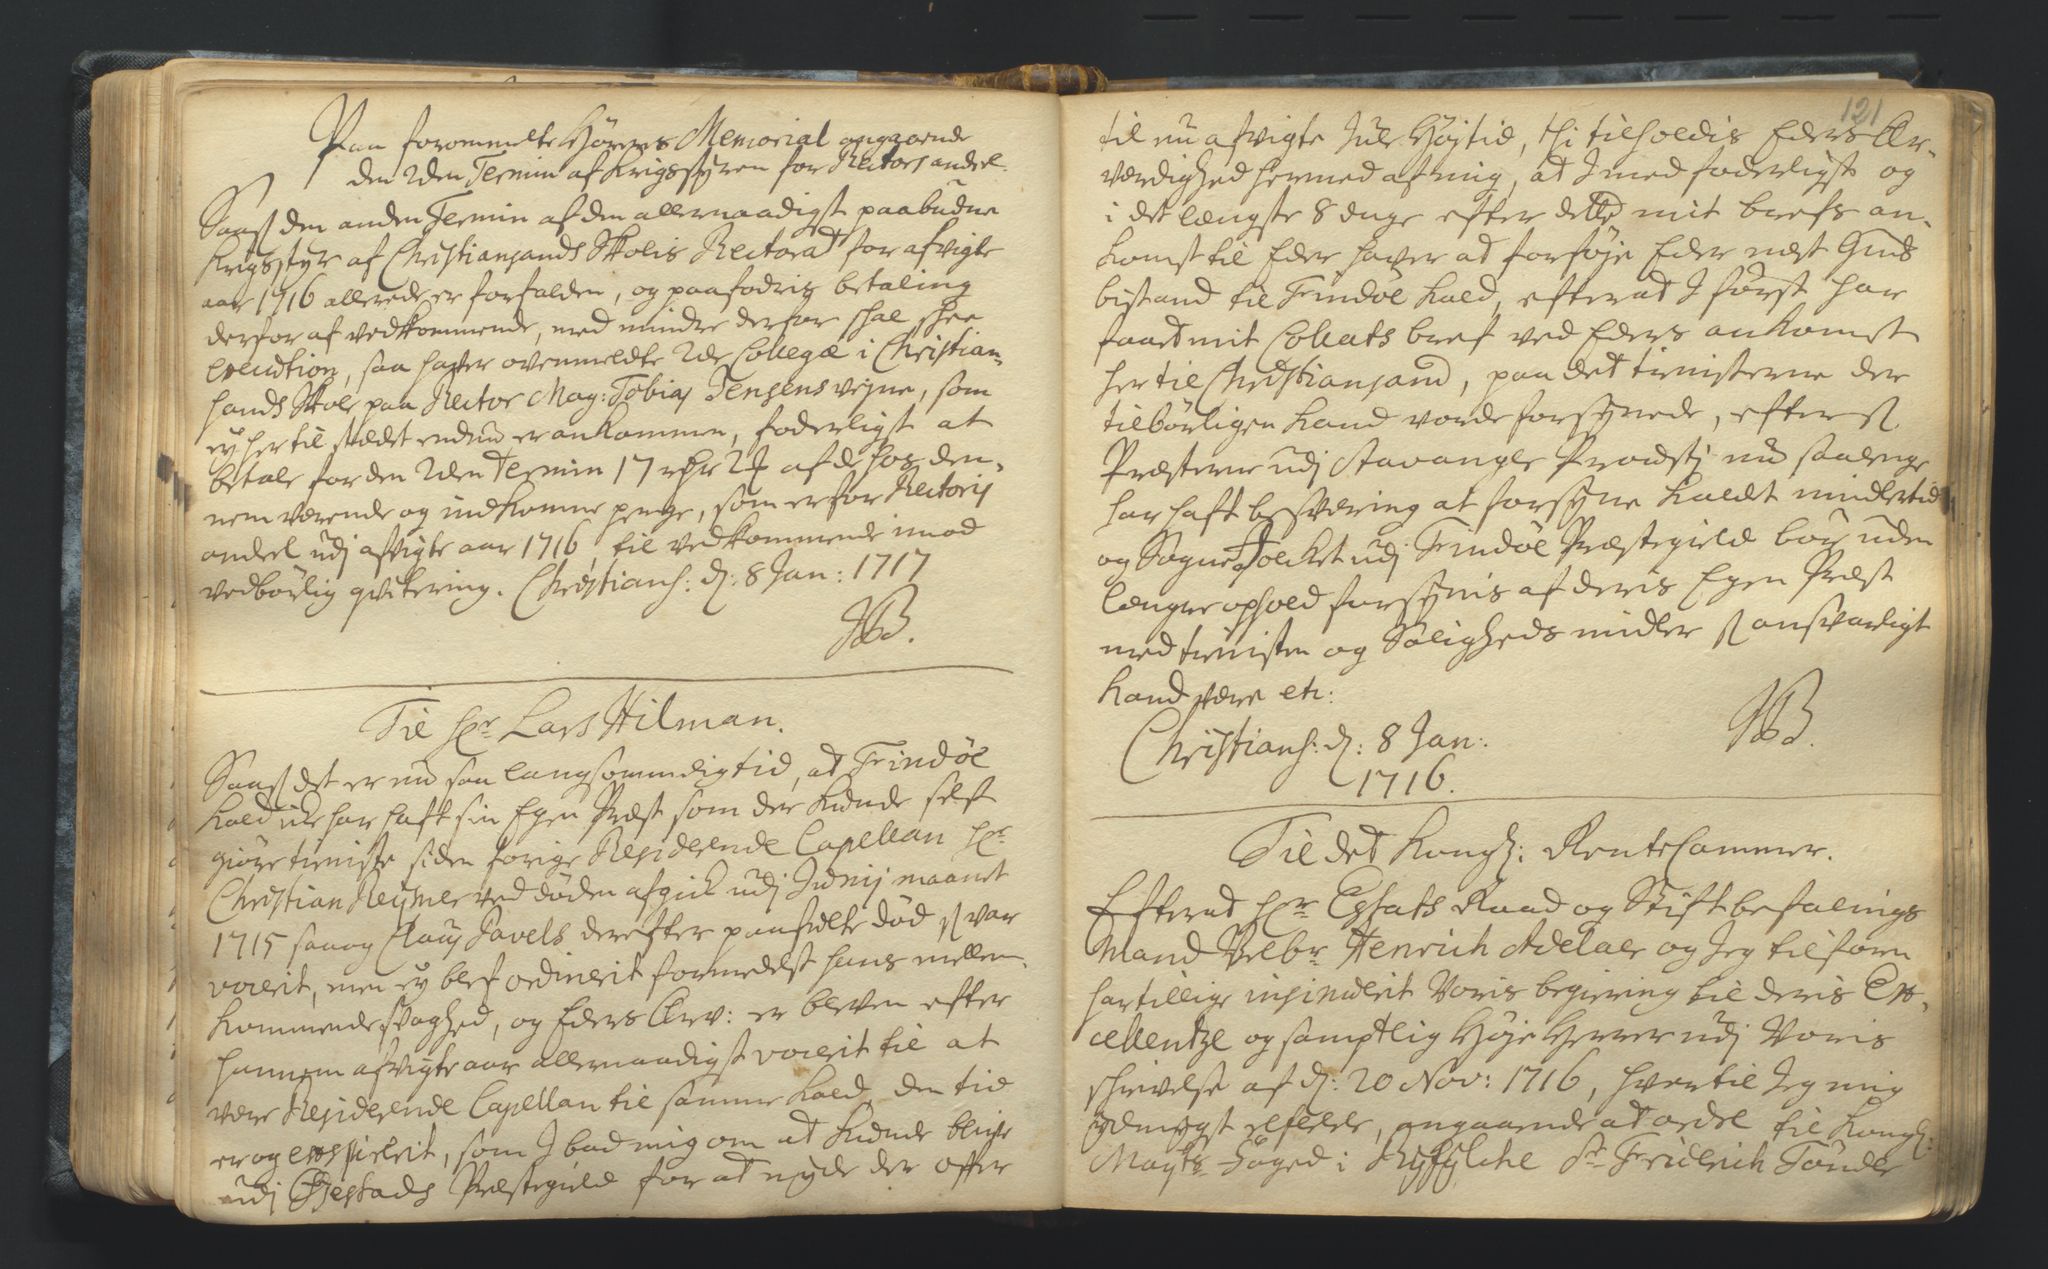 Paa forommelte Hørers Memorial angaaende
den 2den Termin af Krigsstyren for Rectors andeel.
Saasom den anden Termin af den allernaadigst paabudne
Krigsstyr af Christiansands Skolis Rectorat for afvigte
aar 1716 allerede er forfalden, og paafodris betaling
derfor af vedkommende, med mindre derfor skal skee
execution, saa hafver ovenmeldte 2de Collegæ i Christian-
sands Skole paa Rector Mag: Tobias Jensens vegne, som
ey her til stædet endnu er ankommen, foderligst at
betale for den 2den Termin 17 rdr af de hos den-
nem værende og indkomne penge, som er for Rectoris
andeel udj afvigte aar 1716, til vedkommende imod
vedbørlig qvitering. Christians: d: 8 Jan: 1717
JB.
Til Hr Lars Hilman.
Saasom det er nu saa langsommelig tid, at Findøe
kald icke har haft sin Egen Præst som der kunde self
giøre tieniste siden forige Residerende Capellan Hr
Christian Reymer ved døden afgick udj Junij maanet
1715 saa og Claus Pavels derefter paafulte død som var
voceret, men ey blef ordineret formedelst hans mellem-
kommende svaghed, og Eders Ærv: er bleven efter
hannem afvigte aar allernaadigst voceret til at
være Residerende Capellan til samme kald, den tid
er og exspireret, som I bad mig om at kunde blive
udj Øjestads Præstegield for at nyde der offer
121
til nu afvigte Jule Højtid, thi tilholdis Eders Ær-
værdighed hermed af mig, at I med foderligst og
i det længste 8 dage efter dette mit brefs an-
komst til Eder hafver at forføje Eder næst Guds
bistand til Findøe kald, efter at I først har
faaet mit Collats bref ved Eders ankomst
her til Christiansand, paa det tienisterne der
tilbørligen kand vorde forsynede, eftersom
Præsterne udj Stavanger Provsti nu saalenge
har haft besværing at forsyne kaldet imidlertid
og Sogne Folcket udj Findøe Præstegield bør uden
længer ophold forsynis af deris Egen Præst
med tienisten og Saligheds midler som ansvarligt
kand være etc:
JB.
Christians: d: 8 Jan:
1716.
Til det Kongl: RenteCammer.
Efterat Hr Etats Raad og Stiftbefalings
Mand Velbr Henrich Adelaer og Jeg tilforn
har tillige insinueret Voris begiering til deris Ex-
cellentze og samptlig Høje Herrer udj Voris
skrivelse af d: 20 Nov: 1716, hvortil Jeg mig
ydmygst refererer, angaaende at ordre til Kongl:
Mayts Foged i Ryfylcke Sr Friderich Tønder